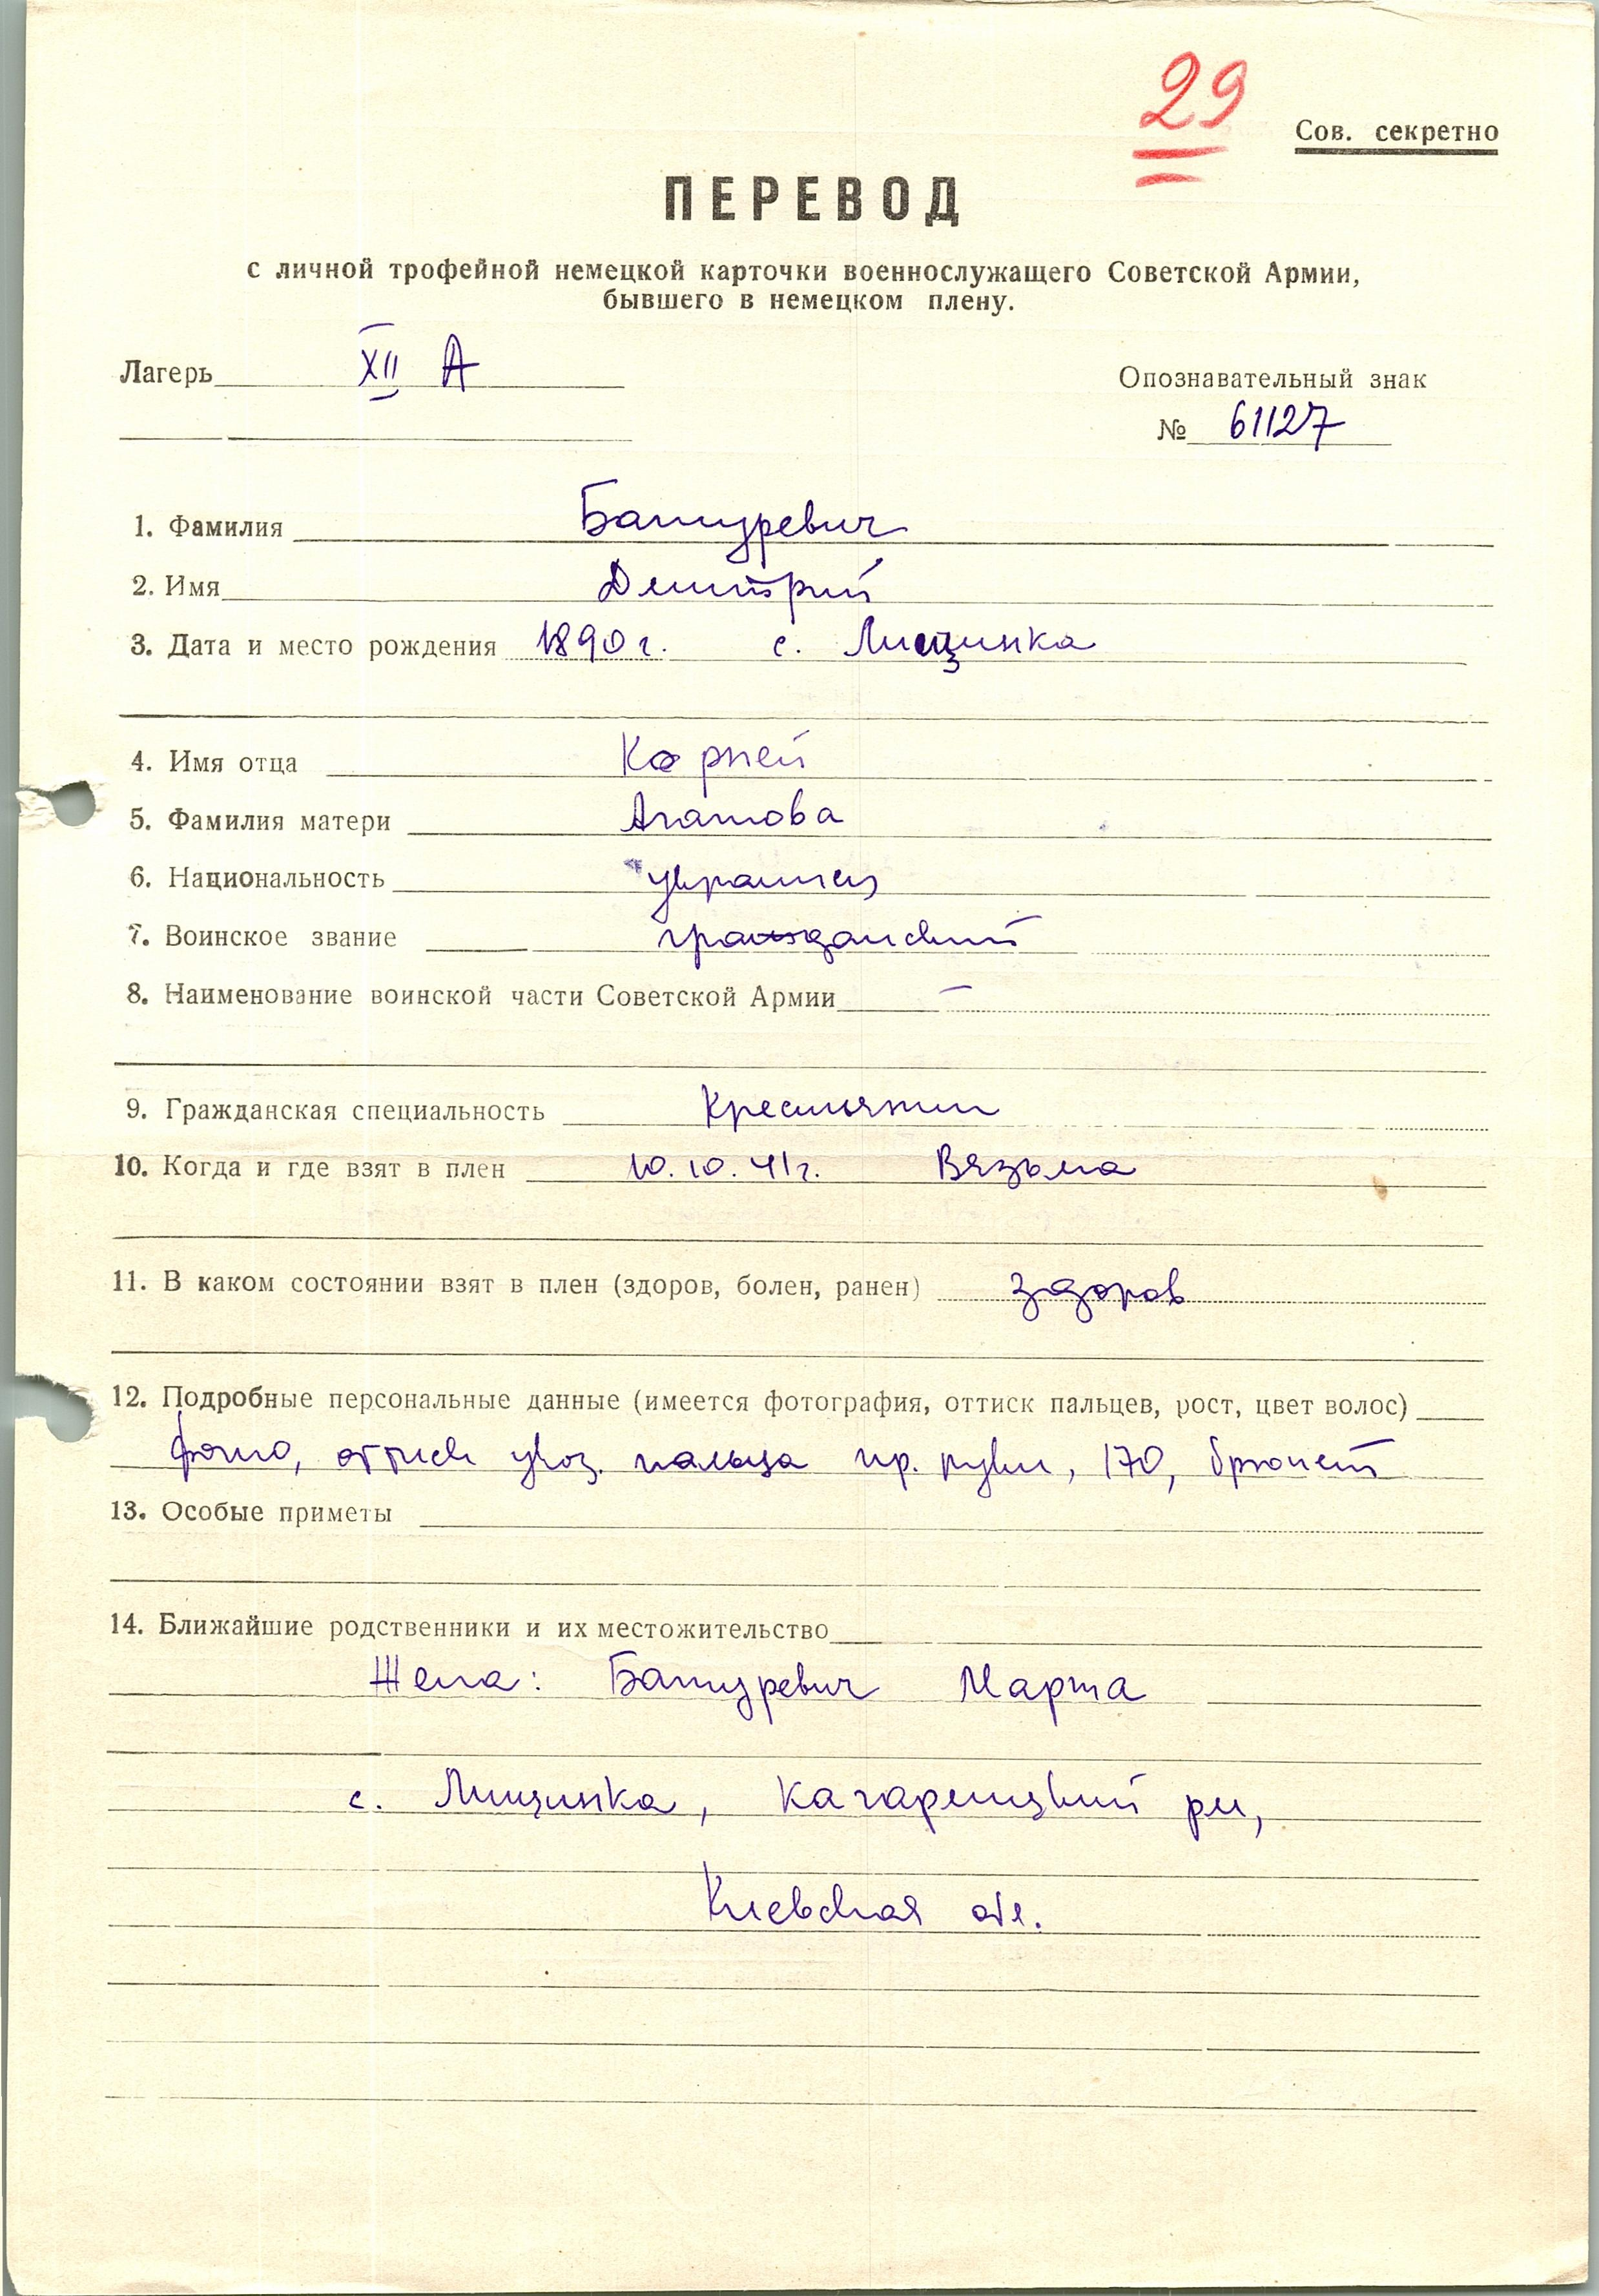 29
Сов. секретно
ПЕРЕВОД
с личной трофейной немецкой карточки военнослужащего Советской Армии,
бывшего в немецком плену.
Лагерь XII А
Опознавательный знак
№ 61127
1. Фамилия Батуревич
2. Имя Дмитрий
3. Дата и место рождения 1890 г. с. Лищинка
4. Имя отца Корней
5. Фамилия матери Агатова
6. Национальность украинец
7. Воинское звание гражданский
8. Наименование воинской части Советской Армии –
9. Гражданская специальность Крестьянин
10. Когда и где взят в плен 10.10.41г. Вязьма
11. В каком состоянии взят в плен (здоров, болен, ранен) здоров
12. Подробные персональные данные (имеется фотография, оттиск пальцев, рост, цвет волос)
фото, оттиск указ. пальца пр. руки, 170, брюнет
13. Особые приметы
14. Ближайшие родственники и их местожительство
Жена: Батуревич Марта
с. Лищинка, Кагарлицкий рн,
Киевская обл.